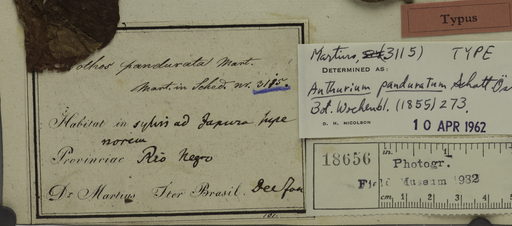 Typus
Pothos pandurata Mart.
Mart. in Sched. nr. 3115.
Habitat in sylvis ad Japura supe
norem
Provinciae Rio Negro
Dr Martius Iter Brasil. Dec
Martius, (3115) TYPE
DETERMINED AS:
Anthurium panduratum Schott Ös
Bot. Wochenbl. (1855) 273.
D. H. NICOLSON
10 APR 1962
18656
in. 1
Photogr.
Field Museum 1932
cm 1 2 3 4 5